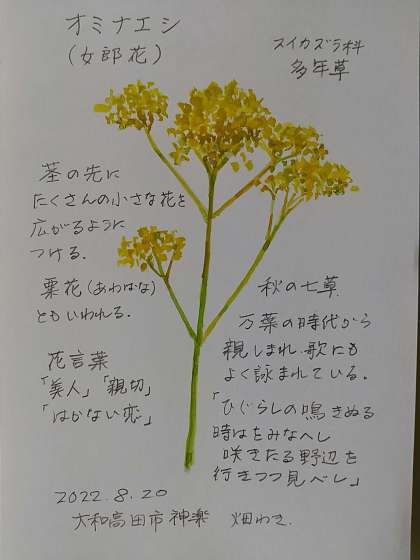 オミナエシ
(女郎花)
スイカズラ科
多年草
茎の先に
たくさんの小さな花を
広がるように
つける.
粟花(あわばな)
ともいわれる.
花言葉
「美人」「親切」
「はかない恋」
秋の七草
万葉の時代から
親しまれ、歌にも
よく詠まれている.
「ひぐらしの鳴きぬる
時はをみなへし
咲きたる野辺を
行きつつ見べし」
2022.8.20
大和高田市神楽 畑わき.